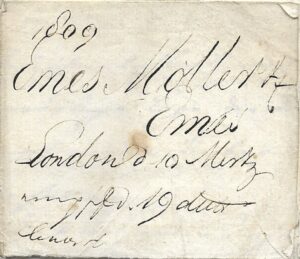 1809
Emes Möller &
Emes
London d 10 Mertz
empf d. 19 dito